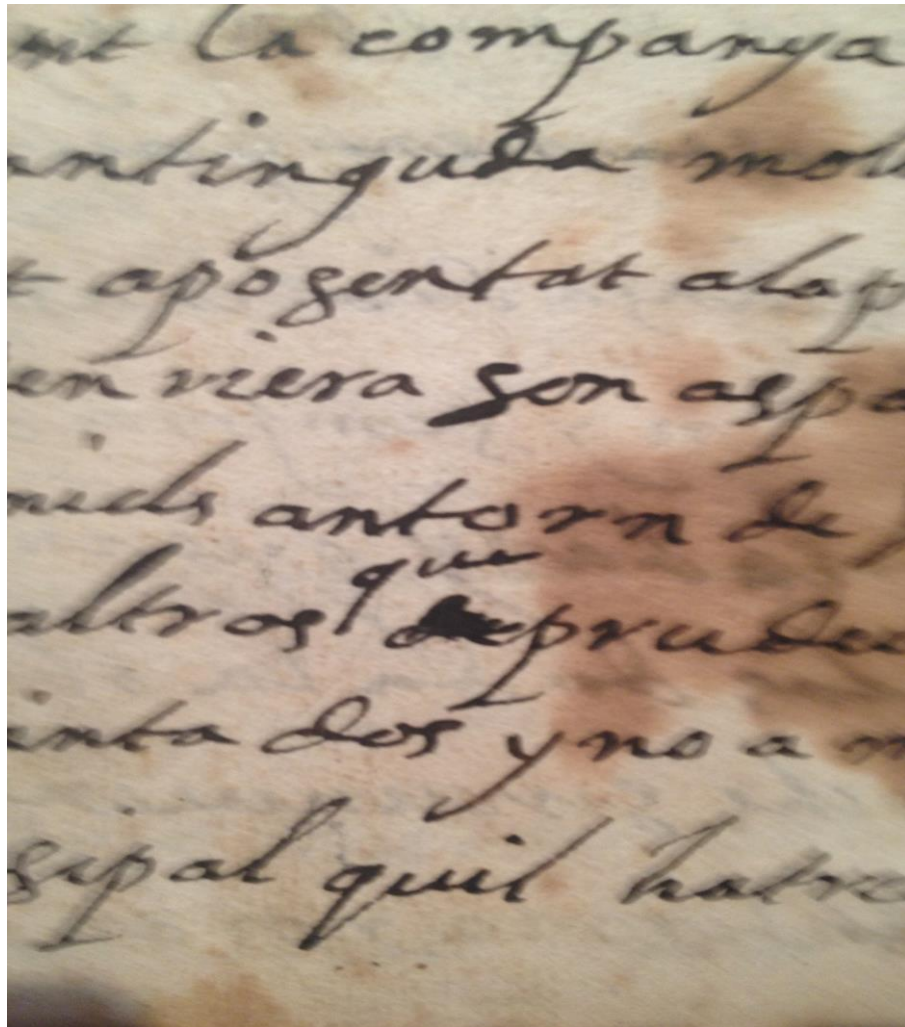 nt la companya
antinguda mol
t aposentat alap
en viera son aspa
niels antorn de
que
altros prude
inta dos y no a
sipal quil hatre